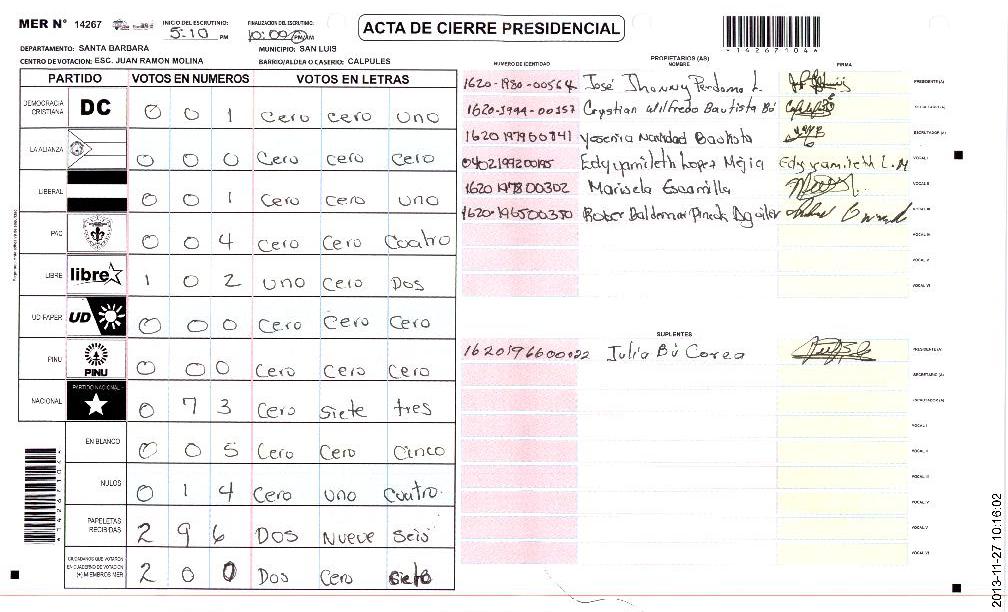 MER N° 14267 INICIO DEL ESCRUTINIO: 5:10 PM FINALIZACION DEL ESCRUTINIO: 10:09 PM/AM
ACTA DE CIERRE PRESIDENCIAL
DEPARTAMENTO: SANTA BARBARA MUNICIPIO: SAN LUIS
CENTRO DE VOTACION: ESC. JUAN RAMON MOLINA BARRIO/ALDEA O CASERIO: CALPULES
PARTIDO VOTOS EN NUMEROS VOTOS EN LETRAS
DEMOCRACIA CRISTIANA DC 0 0 1 cero cero uno
LA ALIANZA 0 0 0 Cero cero cero
LIBERAL 0 0 1 cero cero uno
PAC 0 0 4 cero Cero Cuatro
LIBRE libre 1 0 2 uno Cero Dos
UD FAPER UD 0 0 0 Cero Cero Cero
PINU PINU 0 0 0 Cero Cero Cero
NACIONAL PARTIDO NACIONAL 0 7 3 Cero Siete tres
EN BLANCO 0 0 5 Cero Cero Cinco
NULOS 0 1 4 Cero uno Cuatro
PAPELETAS RECIBIDAS 2 9 6 Dos Nueve Seis
CIUDADANOS QUE VOTARON EN CUADERNO DE VOTACION (+) MIEMBROS MER 2 0 0 Dos Cero
NUMERO DE IDENTIDAD PROPIETARIOS (AS) NOMBRE FIRMA
1620-1980-00564 José Jhonny Perdomo L. PRESIDENTE(A)
1620-1944-00157 Crystian Wilfredo Bautista Bú SECRETARIO(A)
Yesenia Natividad Bautista ESCRUTADOR (A)
Edy yamileth Lopez Mejia Edy yamileth L.M VOCAL I
1620 197800302 Marisela Escamilla VOCAL II
1620-196500350 VOCAL III
VOCAL IV
VOCAL V
VOCAL VI
SUPLENTES
1620196600122 Julia Bú Corea PRESIDENTE(A)
SECRETARIO (A)
ESCRUTADOR (A)
VOCAL I
VOCAL II
VOCAL III
VOCAL IV
VOCAL V
VOCAL VI
2013-11-27 10:16:02